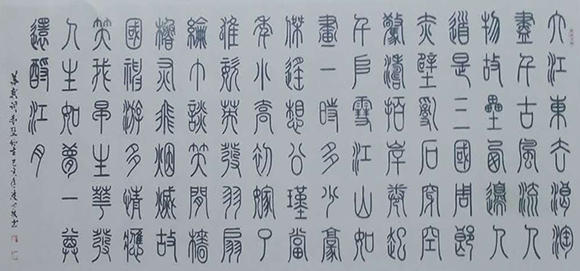 大江東去浪淘
盡千古風流人
物故壘西邊人
道是三國周郎
赤壁亂石穿空
驚濤拍岸捲起
千堆雪江山如
畫一時多少豪
傑遙想公瑾當
年小喬初嫁了
雄姿英發羽扇
綸巾談笑間檣
櫓灰飛烟滅故
國神游多情應
笑我早生華發
人生如夢一尊
還酹江月